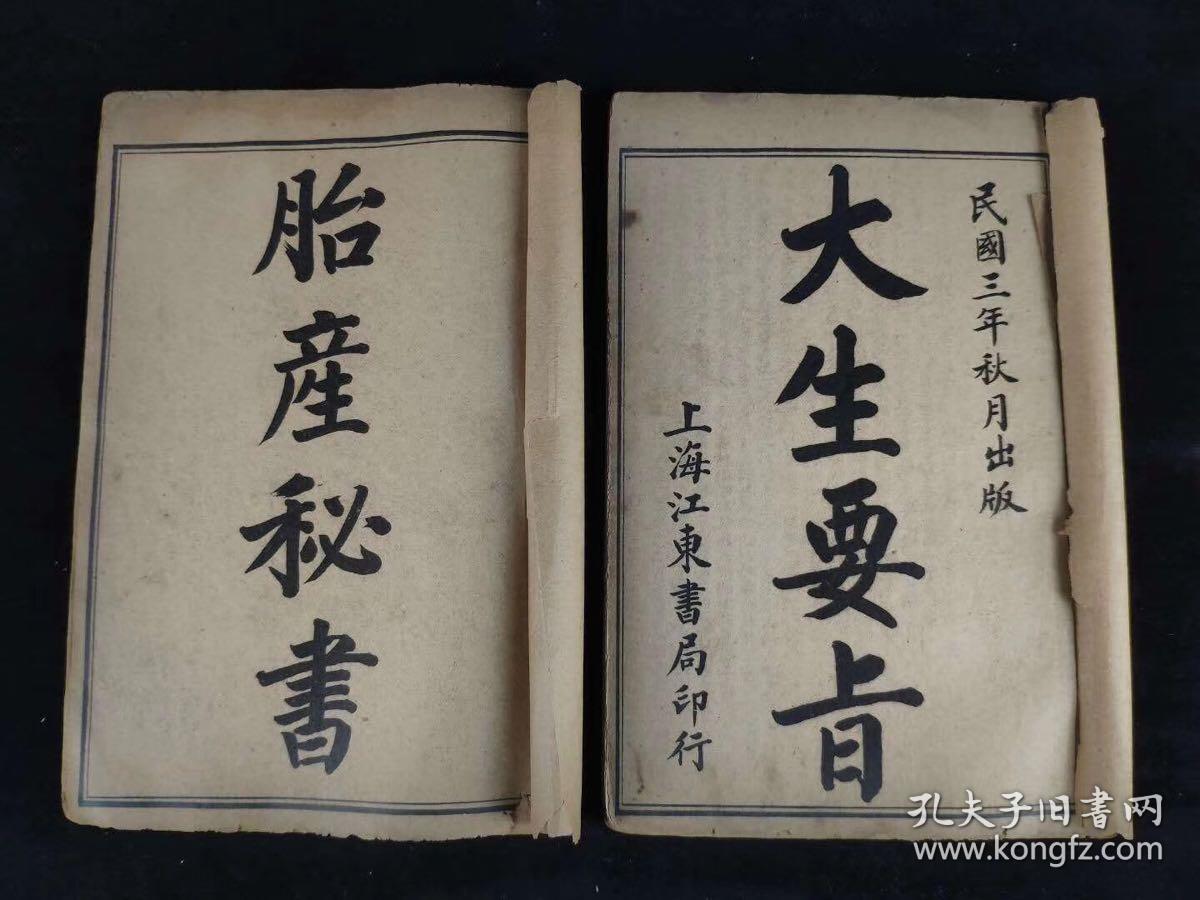 民國三年秋月出版
大生要旨
上海江東書局印行
胎產秘書
孔夫子旧书网
www.kongfz.com